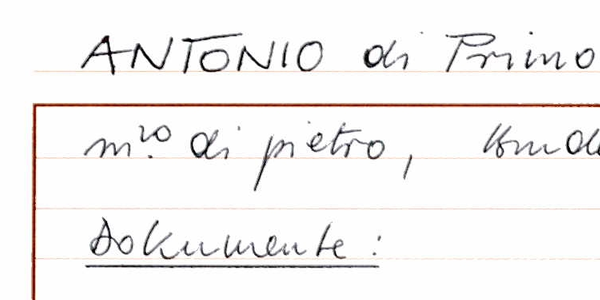 ANTONIO di Primo
m.ro di pietro,
Dokumente: